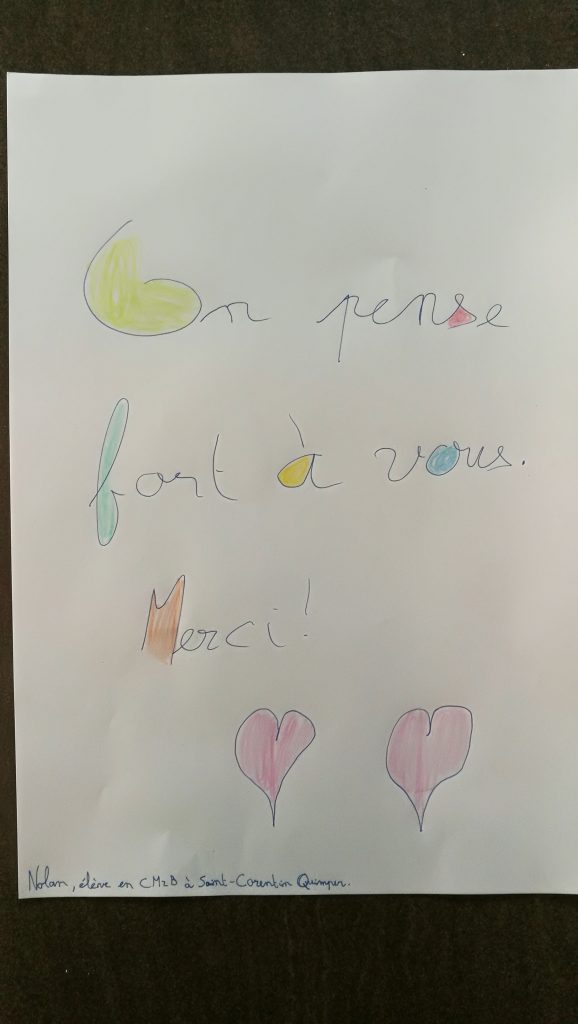 On pense
fort à vous.
Merci!
Nolan, élève en CM2B à Saint-Corentin Quimper.